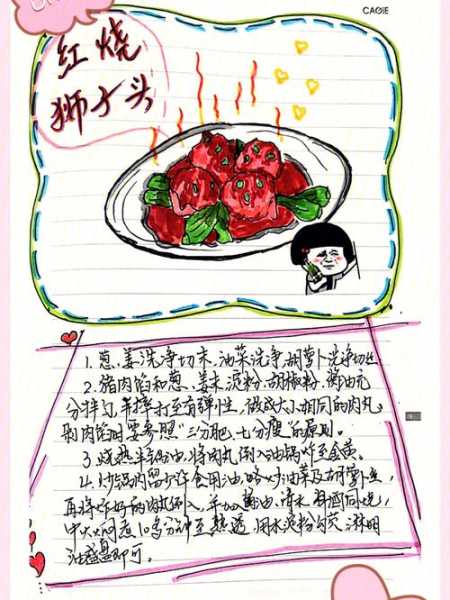 CAGIE
红烧
狮子头
1. 葱、姜洗净切末，油菜洗净，胡萝卜洗净切丝
2. 猪肉馅和葱、姜末、淀粉、胡椒粉、
分拌匀，摔打至有弹性，做成大小相同的肉丸，
剁肉馅时要参照“三分肥、七分瘦”的原则。
3. 烧热半锅油，将肉丸倒入油锅炸至金黄。
4. 炒锅内留少许食用油，略炒油菜及胡萝卜丝，
再将炸好的肉丸倒入，酱油、清水、料酒同烧，
中火焖煮10多分钟至熟透，用水淀粉勾芡，淋明
油盛盘即可。